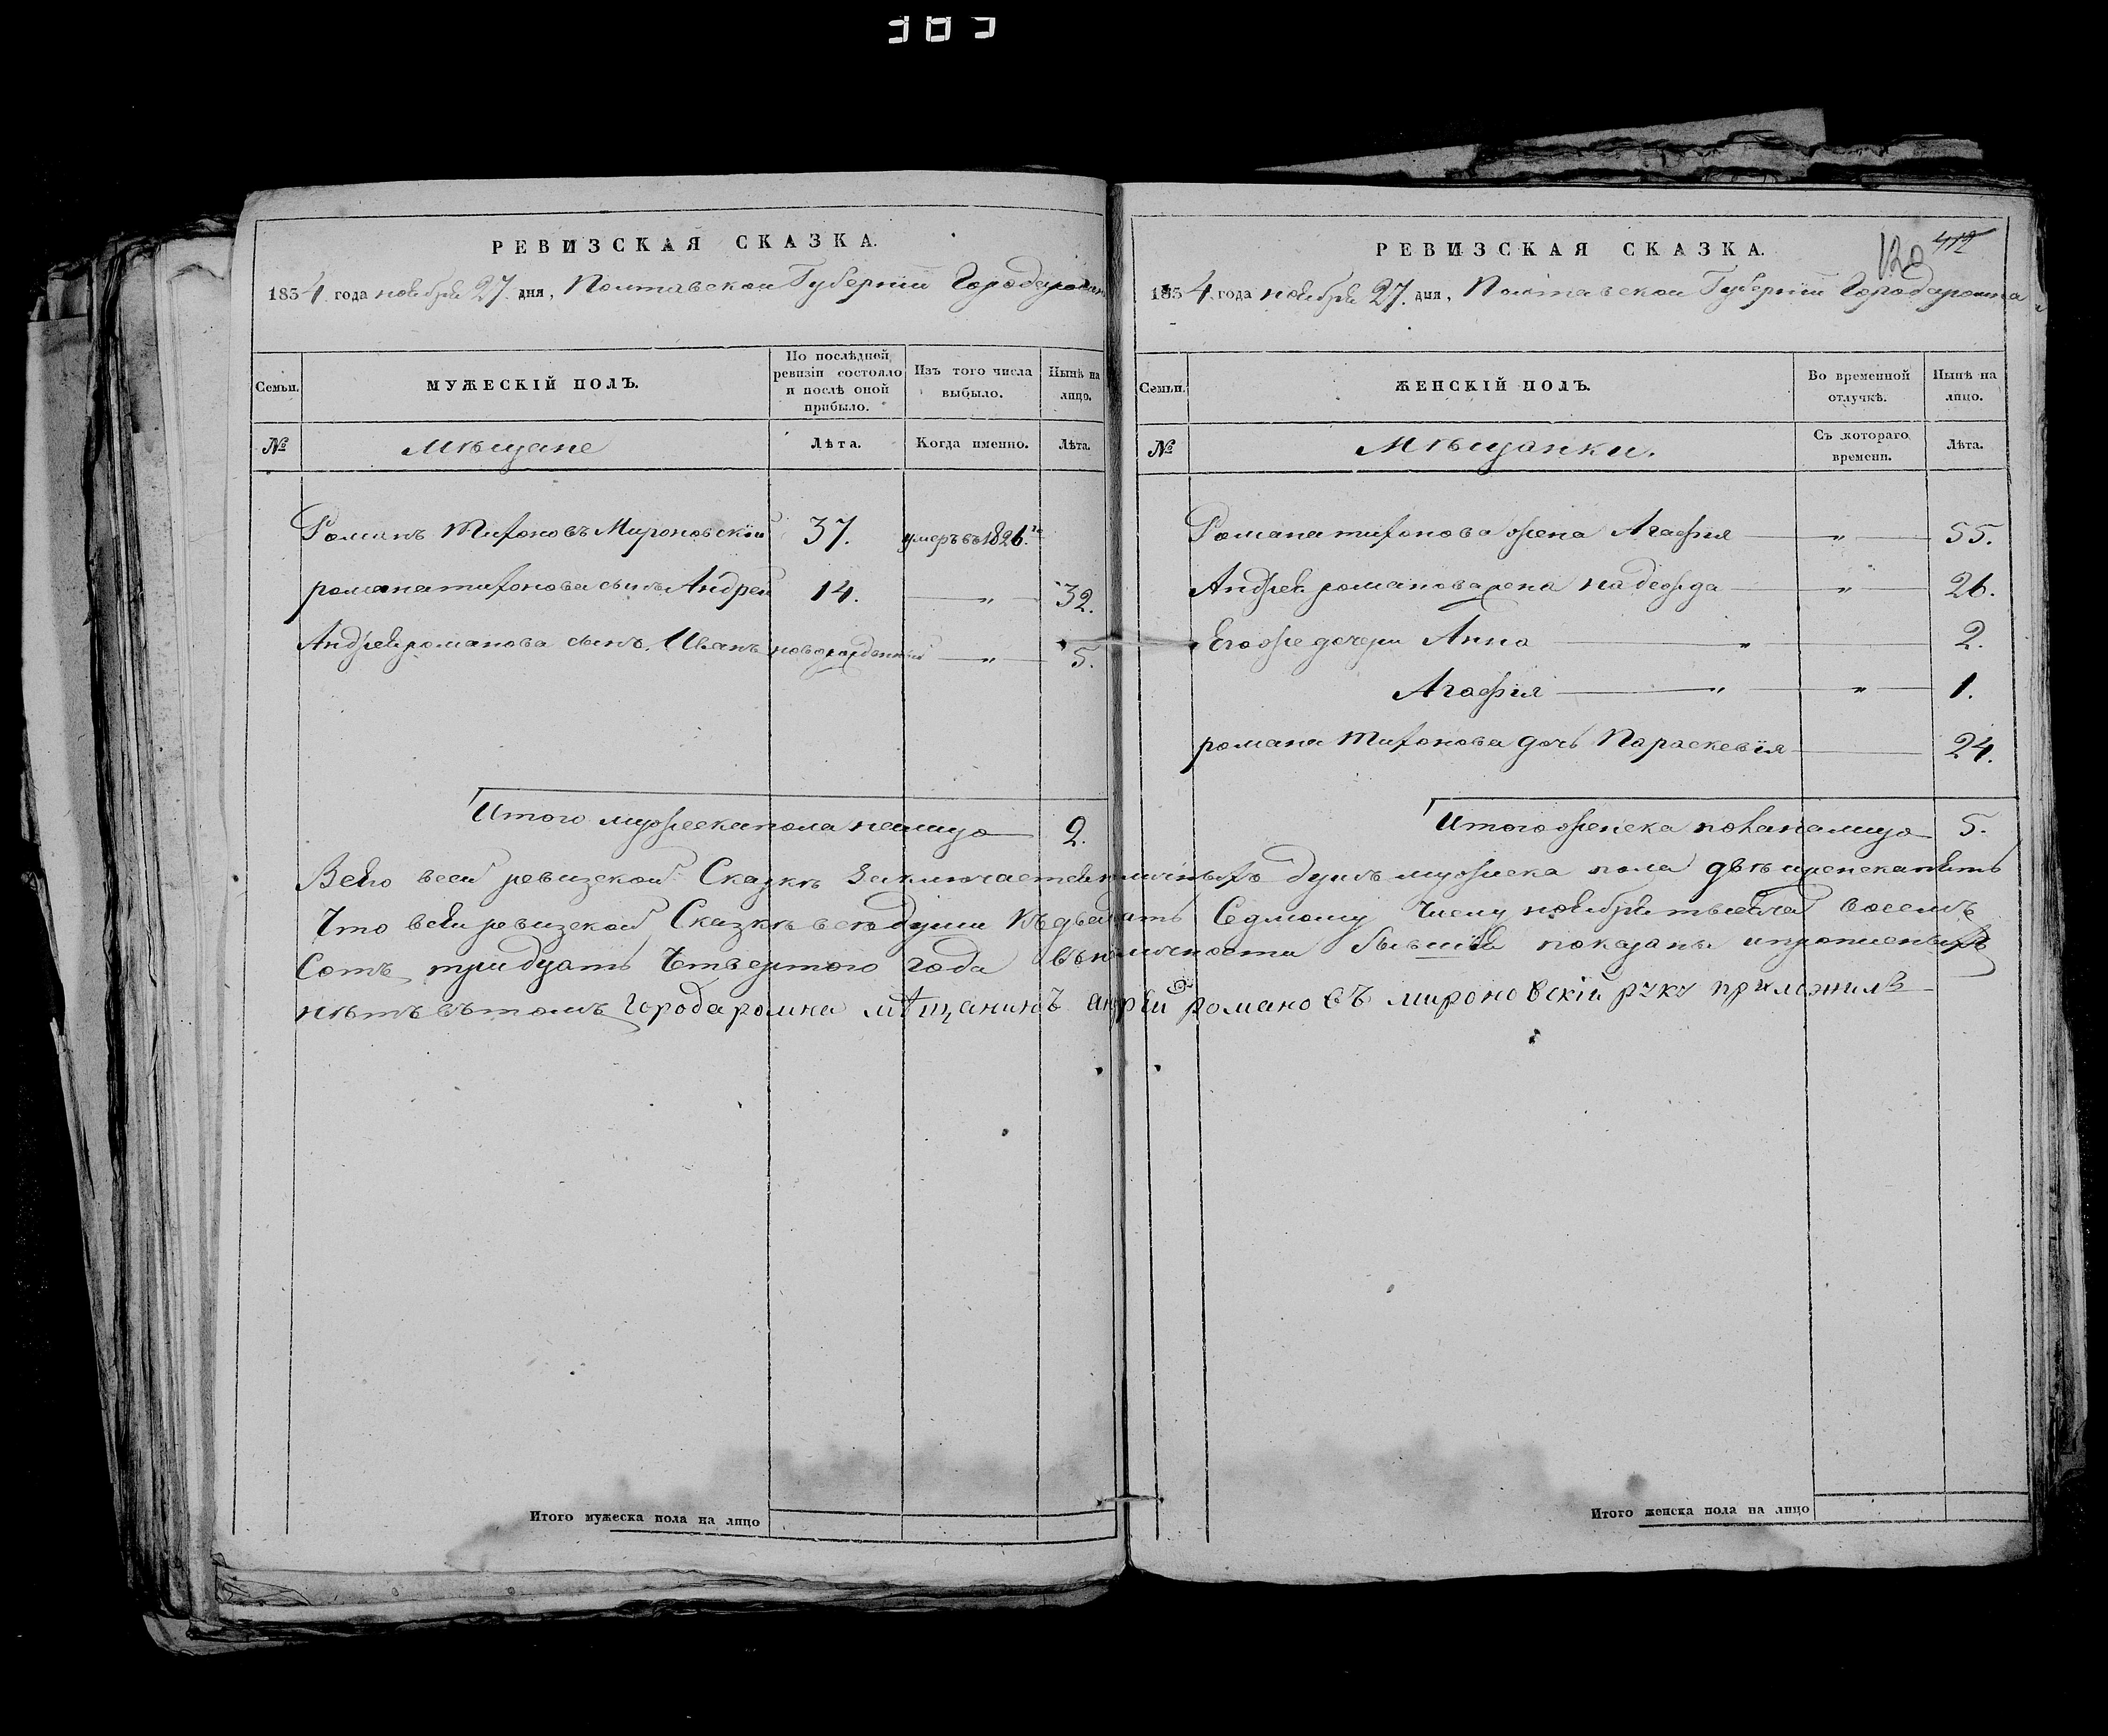 РЕВИЗСКАЯ СКАЗКА.
1834 года ноября 27. дня, Полтавской Губернии Города ромна
Семьи.
МУЖЕСКІЙ ПОЛЪ.
По послѣдней ревизіи состояло и послѣ оной прибыло.
Изъ того числа выбыло.
Нынѣ на лицо.
№
Мѣщане
Лѣта.
Когда именно.
Лѣта.
Романъ Тихоновъ Мироновскій 37. умеръ въ 1826.го
романа тихонова сынъ Андрей 14. — " — 32.
Андрея романова сынъ. Иванъ новорожденный — " — 5.
Итого мужеска пола налицо — 2.
РЕВИЗСКАЯ СКАЗКА.
120 412
1834 года ноября 27. дня, Полтавской Губернии Города ромна
Семьи.
ЖЕНСКІЙ ПОЛЪ.
Во временной отлучкѣ.
Нынѣ на лицо.
№
Мѣщанки.
Съ котораго времени.
Лѣта.
Романа тихонова жена Агафия — " — 55.
Андрея романова жена надежда — " — 26.
Егоже дочери Анна — " — 2.
Агафия — " — " — 1.
романа Тихонова дочь Параскевия — 24.
Итого женска пола налицо — 5.
Всего всей ревизской Сказкѣ Заключается наличныхъ душъ мужеска пола двѣ иженска пять
Что всей ревизской Сказкѣ всѣ души Къ двадцать Седмому Числу ноября тысяча восемъ
Сотъ тридцать Четвертого года въ наличности бывшия показаны ипрописныхъ
нѣтъ вътомъ города ромна мѣщанинъ андрѣй романовъ мироновскій руку приложилъ
Итого мужеска пола на лицо
Итого женска пола на лицо